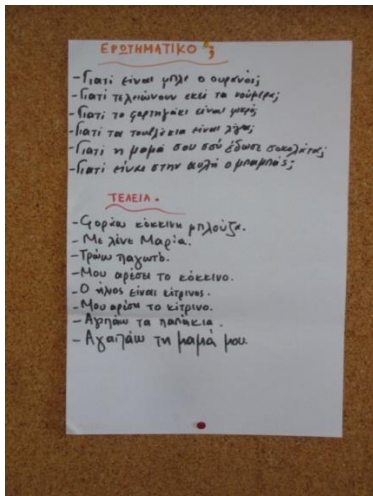 ΕΡΩΤΗΜΑΤΙΚΟ ;
- Γιατί είναι μπλε ο ουρανός;
- Γιατί τελειώνουν εκεί τα νούμερα;
- Γιατί το φορτηγάκι είναι μικρό;
- Γιατί τα τουβλάκια είναι λίγα;
- Γιατί η μαμά σου σού έδωσε σοκολάτα;
- Γιατί είναι στην αυλή ο μπαμπάς;
ΤΕΛΕΙΑ .
- Φοράω κόκκινη μπλούζα.
- Με λένε Μαρία.
- Τρώω παγωτό.
- Μου αρέσει το κόκκινο.
- Ο ήλιος είναι κίτρινος.
- Μου αρέσει το κίτρινο.
- τα παπάκια.
- Αγαπάω τη μαμά μου.